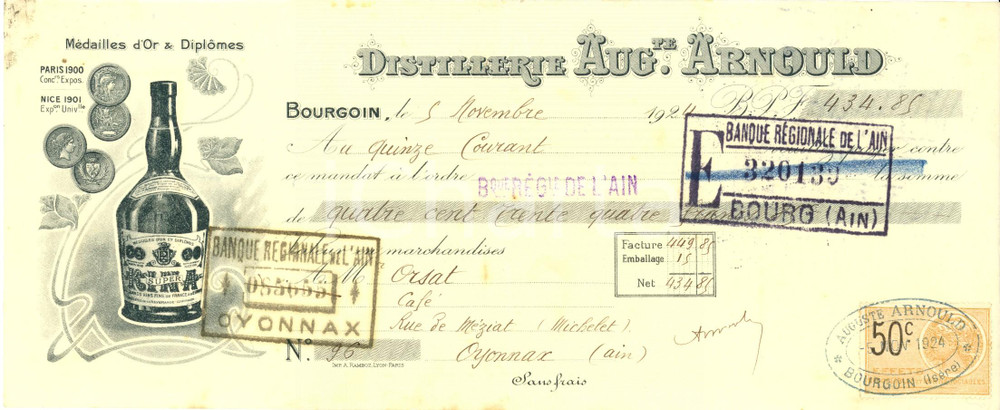 Médailles d'Or & Diplômes
PARIS 1900
Conc.rs Expos.
NICE 1901
Exp.on Univ.lle
DISTILLERIE AUG.TE ARNOULD
BOURGOIN, le 5 Novembre 1924 B.P.F. 434.85
Au quinze Courant contre
ce mandat à l'ordre la somme
Bque RÉGle DE L'AIN
de quatre cent trente quatre francs
marchandises
Facture 449.85
Emballage 15
Net 434.85
A Mr Orsat
Café
Rue de Méziat (Michelet)
Oyonnax (ain)
N.o 96
IMP. A. RAMBOZ, LYON-PARIS
Sans frais
BANQUE RÉGIONALE DE L'AIN
E
320139
BOURG (AIN)
BANQUE RÉGIONALE DE L'AIN
OYONNAX
KINA
SUPER
AUGUSTE ARNOULD
1924
BOURGOIN (Isère)
50c
EFFETS